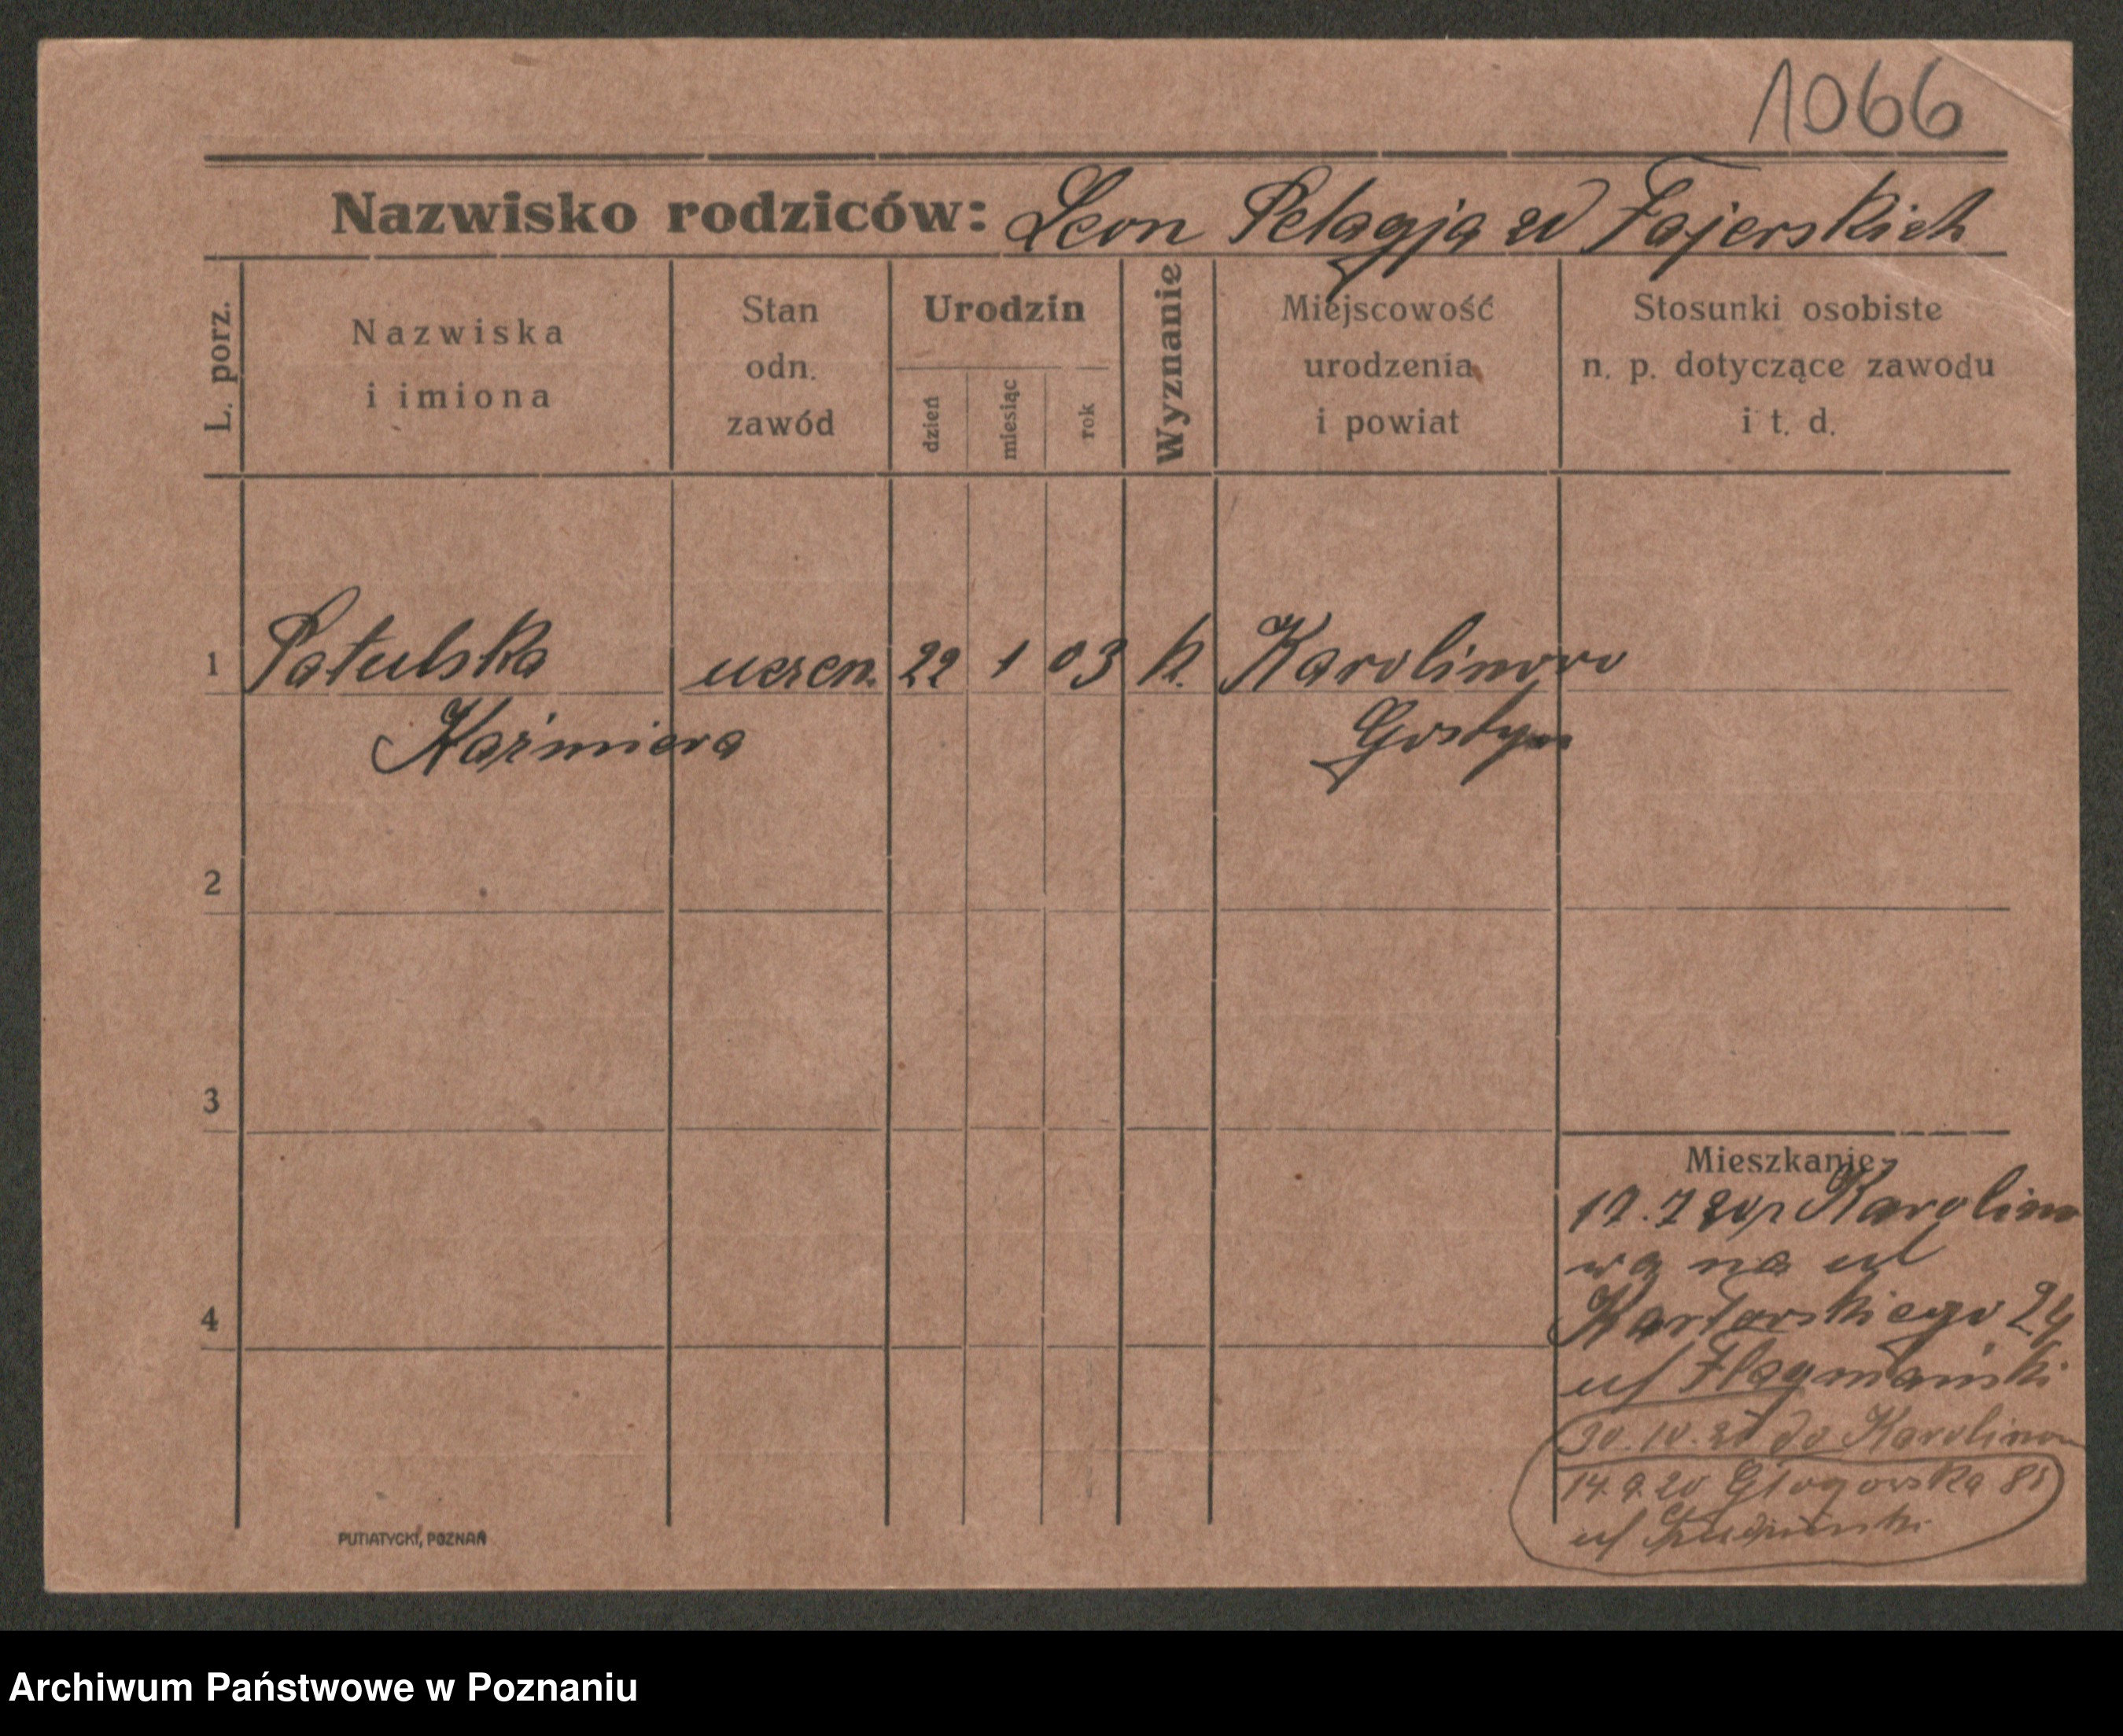 1066
Nazwisko rodziców: Leon Pelagja zd Fajerskich
L. porz.
Nazwiska i imiona
Stan odn. zawód
Urodzin
dzień miesiąc rok
Wyznanie
Miejscowość urodzenia i powiat
Stosunki osobiste n. p. dotyczące zawodu i t. d.
1 Patulska uczen. 22 1 03 k. Karolinowo
Kaźmiera Gostyn
2
3
Mieszkanie
17.7 20 Karolino
wa na ul
24
4
u/
30.10. do Karolinow
14.9.20 Głogowska 85
u/
PUTIATYCKI, POZNAŃ
Archiwum Państwowe w Poznaniu